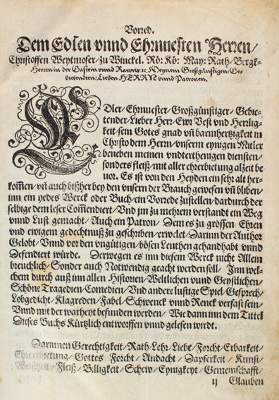 Vorred.
Dem Edlen vnnd Ehrnuesten Herren/
Christoffen Weytmoser/ zu Winckel. Rö: Kö: May: Rath/ Bergk-
Herren in der Gastein vnnd Rauriß rc. Meynem Großgünstigen/ Ge-
bietenden/ Lieben HERRN vnnd Patron.
EDler/ Ehrnuester/ Großgünstiger/ Gebie-
tender/ Lieber Herr/ Ewr Vest vnd Herrlig-
keit sein Gottes gnad vñ barmhertzigkeit in
Christo dem HERRN/ vnserm eynigen Mitler
beneben meinen vnderthenigen diensten/
sonders fleiß/ mit aller ehrerbietung alzeit be-
uor. Es ist von den Heyden ein sehr alt her-
kommen/ vñ auch bißher bey den vnsern der Brauch gewesen/ vñ bliben/
nun ein yedes Werck oder Buch ein Vorrede zustellen/ dardurch der
selbige dem leser Comendiert/ Vnd jm zu mehrem verstandt ein Weg
vnd Lust gemacht/ Auch ein Patron/ Dem es zu grossen Ehren
vnd ewigem gedechtnuß zu geschriben/ erwelet/ Damit der Author
Gelobt/ Vnnd vor den vngütigen/ bösen Leuthen gehandhabt vnnd
Defendirt würde. Derwegen es inn disem Werck nicht Allein
breuchlich/ Sonder auch Notwendig geacht werden soll/ Inn wel-
chem durch auß/ inn allen Historien/ Weltlichen vnnd Geystlichen/
Schöne Tragedien/ Comedien/ Vnd andere lustige Spiel/ Gesprech/
Lobgedicht/ Klagreden/ Fabel/ Schwenck vnnd Renck verfast seyn/
Vnnd mit der warheyt befunden werden/ Wie dann inn dem Tittel
Dieses Buchs Kürtzlich entworffen vnnd gelesen werdt.
Darinnen Gerechtigkeit/ Rath/ Lehr/ Liebe/ Forcht/ Erbarkeit/
Ehrerbietung/ Gottes Forcht/ Andacht/ Dapferkeit/ Kunst/
Weißheit/ Fleiß/ Billigkeit/ Schew/ Eynigkeyt/ Gemeinschafft/
ij Glauben